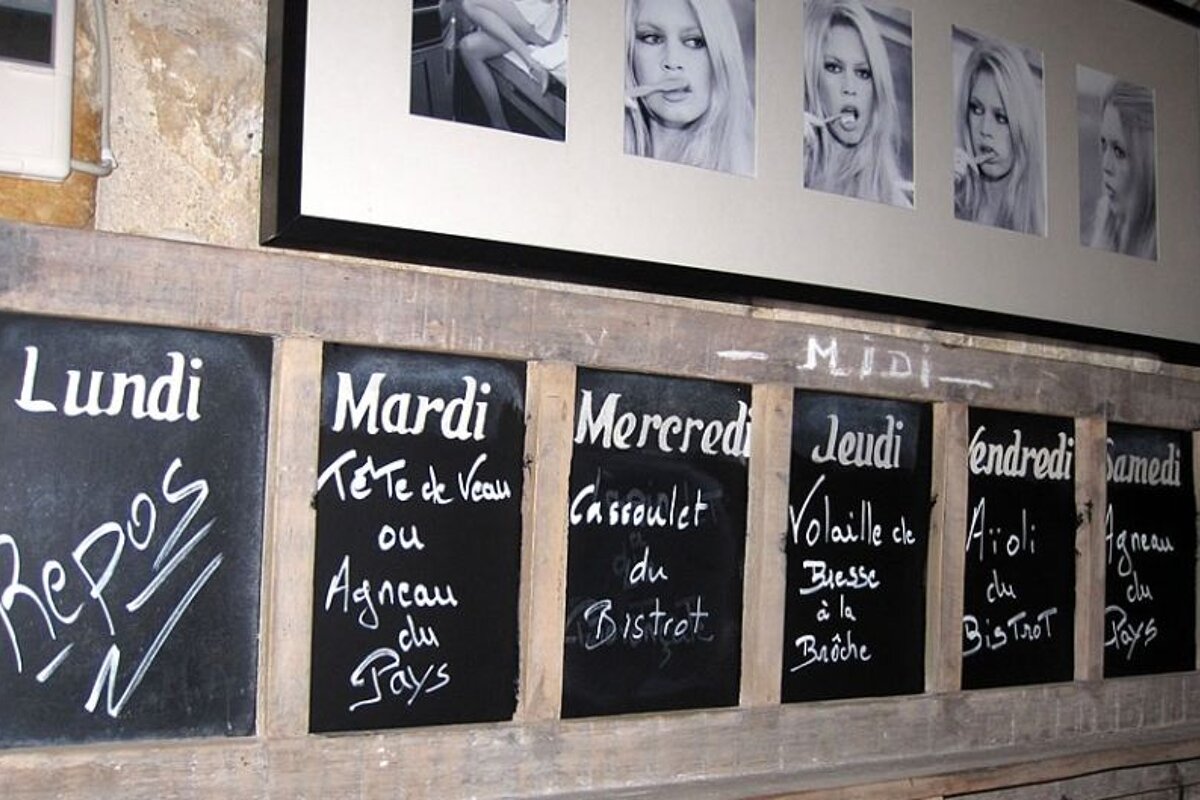 - MIDI -
Lundi
Repos
Mardi
Tête de Veau
ou
Agneau
du
Pays
Mercredi
Cassoulet
du
Bistrot
Jeudi
Volaille de
Bresse
à la
Brôche
Vendredi
Aïoli
du
BisTroT
Samedi
Agneau
du
Pays